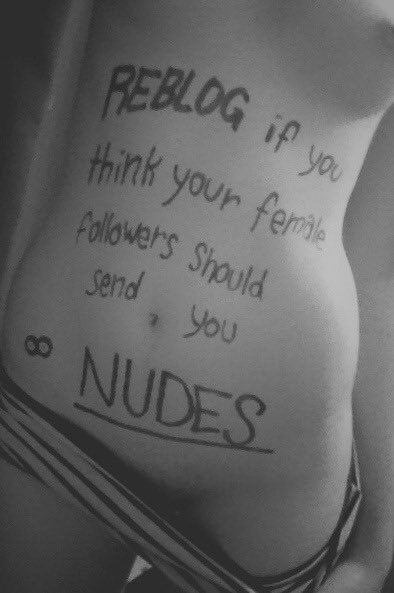 REBLOG if you
think your female
followers should
send you
∞
NUDES